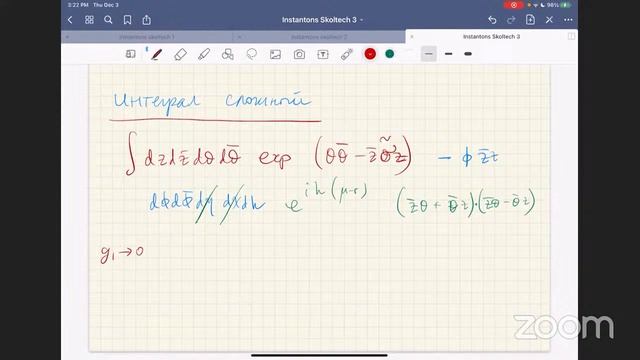 3:22 PM Thu Dec 3
96%
Instantons Skoltech 3
Instantons skoltech 1
Instantons skoltech 2
Instantons Skoltech 3
Интеграл сложный
∫ dz dz̄ dθ dθ̄ exp (θθ̄ − z̄
z) − φ z̄z
dφ dφ̄ dη dχ dh e^{ih(μ−r)} (z̄θ + θ̄z)·(z̄θ − θ̄z)
g₁→0
zoom